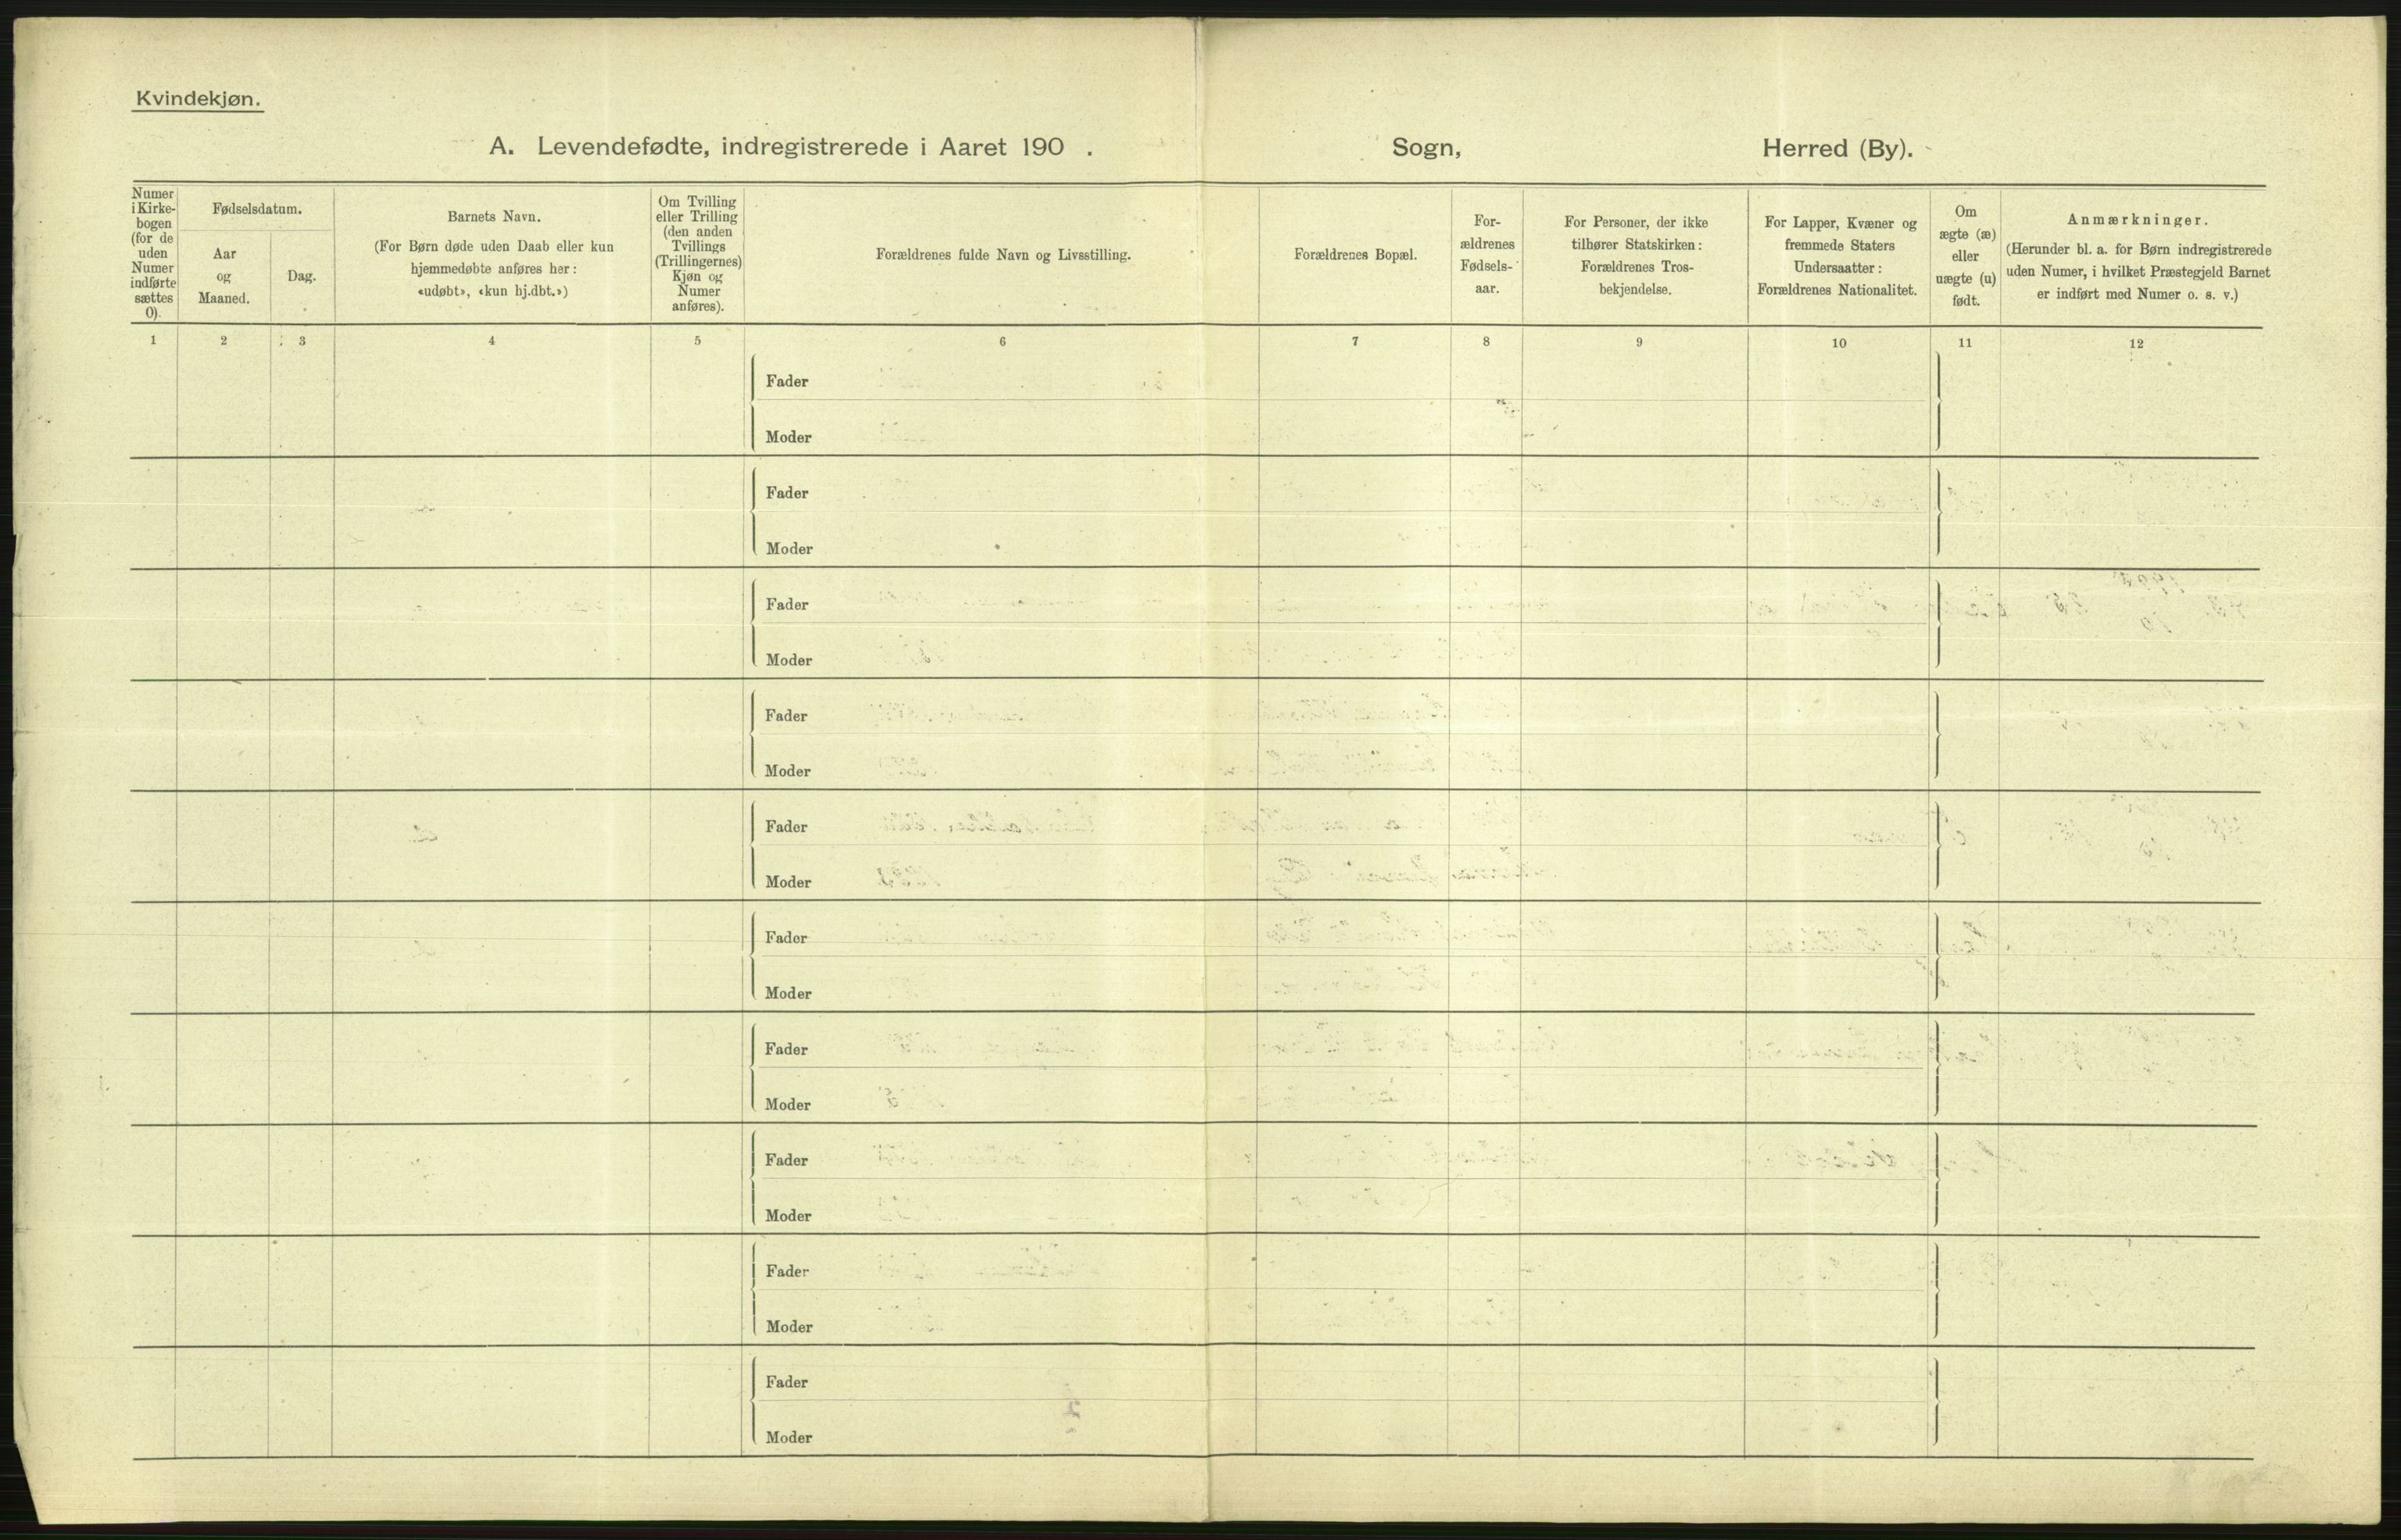 Kvindekjøn.
A. Levendefødte, indregistrerede i Aaret 190 . Sogn, Herred (By).
Numer
i Kirke-
bogen
(for de
uden
Numer
indførte
sættes
0).
Fødselsdatum.
Aar
og
Maaned.
Dag.
Barnets Navn.
(For Børn døde uden Daab eller kun
hjemmedøbte anføres her:
«udøbt», «kun hj.dbt.»)
Om Tvilling
eller Trilling
(den anden
Tvillings
(Trillingernes)
Kjøn og
Numer
anføres).
Forældrenes fulde Navn og Livsstilling.
Forældrenes Bopæl.
For-
ældrenes
Fødsels-
aar.
For Personer, der ikke
tilhører Statskirken:
Forældrenes Tros-
bekjendelse.
For Lapper, Kvæner og
fremmede Staters
Undersaatter:
Forældrenes Nationalitet.
Om
ægte (æ)
eller
uægte (u)
født.
Anmærkninger.
(Herunder bl. a. for Børn indregistrerede
uden Numer, i hvilket Præstegjeld Barnet
er indført med Numer o. s. v.)
1 2 3 4 5 6 7 8 9 10 11 12
Fader
Moder
Fader
Moder
Fader
Moder
Fader
Moder
Fader
Moder
Fader
Moder
Fader
Moder
Fader
Moder
Fader
Moder
Fader
Moder